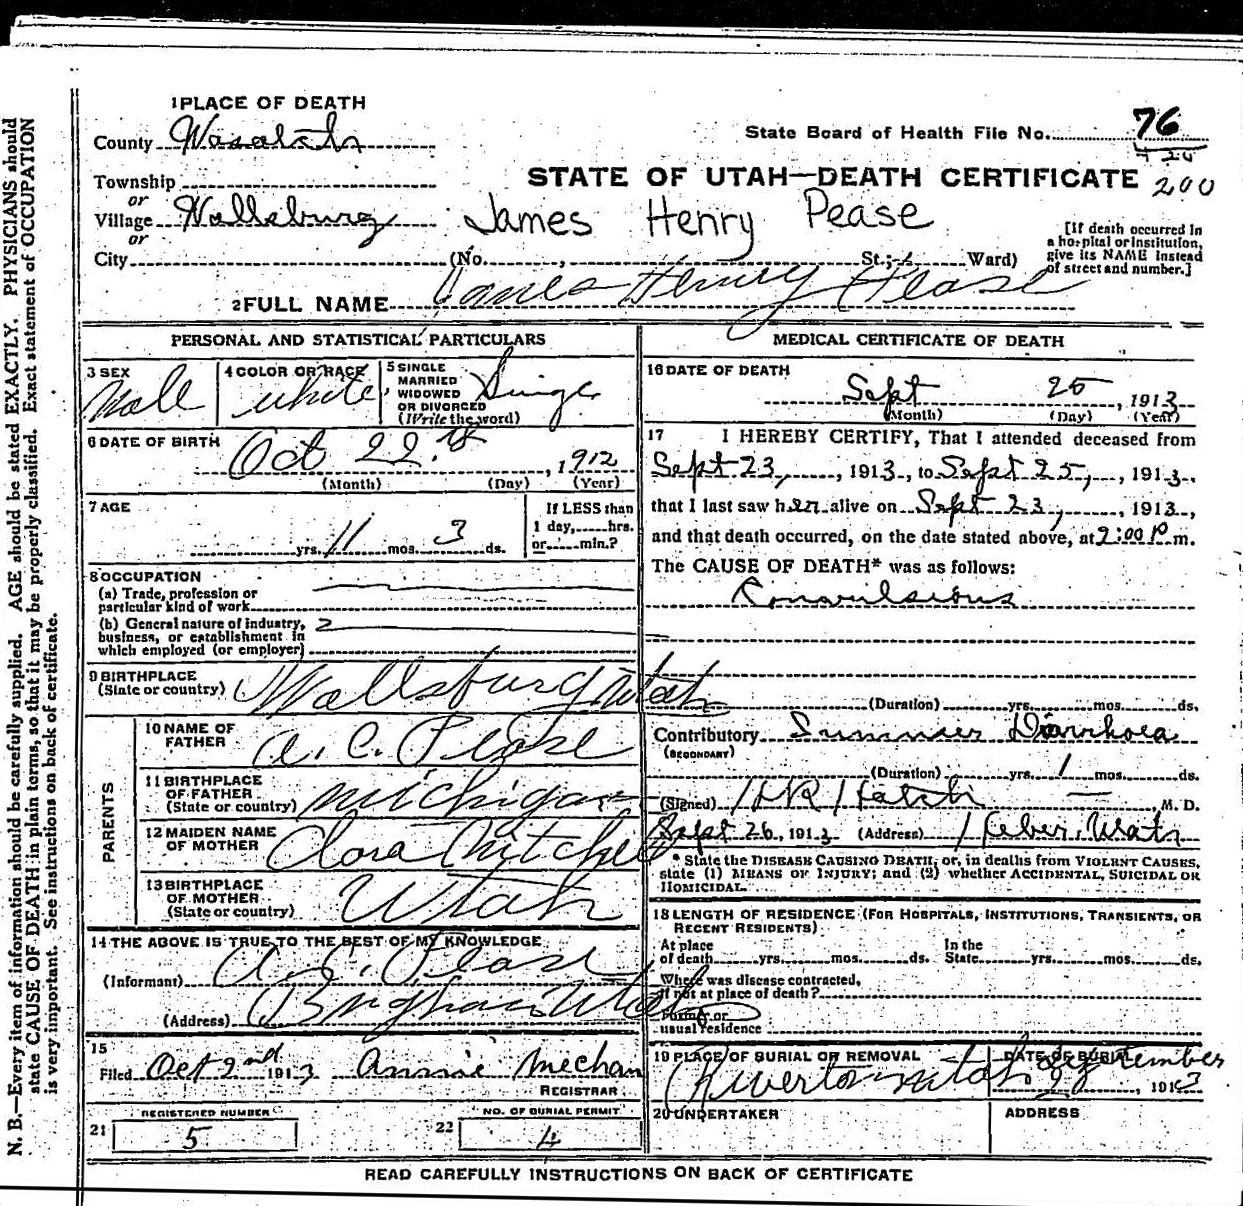 1 PLACE OF DEATH
County Wasatch
State Board of Health File No. 76
200
Township
or
Village Wallsburg
or
City (No. , St.; Ward)
STATE OF UTAH—DEATH CERTIFICATE
James Henry Pease
[If death occurred in
a hospital or institution,
give its NAME instead
of street and number.]
2 FULL NAME James Henry Pease
PERSONAL AND STATISTICAL PARTICULARS
3 SEX
Male
4 COLOR OR RACE
white
5 SINGLE
MARRIED
WIDOWED
OR DIVORCED
(Write the word)
Single
6 DATE OF BIRTH
Oct 22 , 1912
(Month) (Day) (Year)
7 AGE
yrs. 11 mos. 3 ds.
If LESS than
1 day, hrs.
or min.?
8 OCCUPATION
(a) Trade, profession or
particular kind of work
(b) General nature of industry,
business, or establishment in
which employed (or employer)
9 BIRTHPLACE
(State or country) Wallsburg Utah
PARENTS
10 NAME OF
FATHER A. C. Pease
11 BIRTHPLACE
OF FATHER
(State or country) Michigan
12 MAIDEN NAME
OF MOTHER Clara Mitchell
13 BIRTHPLACE
OF MOTHER
(State or country) Utah
14 THE ABOVE IS TRUE TO THE BEST OF MY KNOWLEDGE
(Informant) A. C. Pease
(Address) Bingham Utah
15
Filed Oct 2nd 1913 Annie Mecham
REGISTRAR
REGISTERED NUMBER
21 5
NO. OF BURIAL PERMIT
22 4
MEDICAL CERTIFICATE OF DEATH
16 DATE OF DEATH
Sept 25 , 1913
(Month) (Day) (Year)
17 I HEREBY CERTIFY, That I attended deceased from
Sept 23, , 1913, to Sept 25, , 1913,
that I last saw h alive on Sept 23, , 1913,
and that death occurred, on the date stated above, at 2:00 P.m.
The CAUSE OF DEATH* was as follows:
Convulsions
(Duration) yrs. mos. ds.
Contributory Summer Diarrhoea
(SECONDARY)
(Duration) yrs. 1 mos. ds.
(Signed) Hatch M. D.
Sept 26, 1913 (Address) Heber, Utah
* State the DISEASE CAUSING DEATH, or, in deaths from VIOLENT CAUSES,
state (1) MEANS OF INJURY; and (2) whether ACCIDENTAL, SUICIDAL OR
HOMICIDAL.
18 LENGTH OF RESIDENCE (FOR HOSPITALS, INSTITUTIONS, TRANSIENTS, OR
RECENT RESIDENTS)
At place
of death yrs. mos. ds.
In the
State yrs. mos. ds.
Where was disease contracted,
if not at place of death?
Former or
usual residence
19 PLACE OF BURIAL OR REMOVAL
Riverton Utah
DATE OF BURIAL
September
28 , 1913
20 UNDERTAKER
ADDRESS
READ CAREFULLY INSTRUCTIONS ON BACK OF CERTIFICATE
N. B.—Every item of information should be carefully supplied. AGE should be stated EXACTLY. PHYSICIANS should
state CAUSE OF DEATH in plain terms, so that it may be properly classified. Exact statement of OCCUPATION
is very important. See instructions on back of certificate.